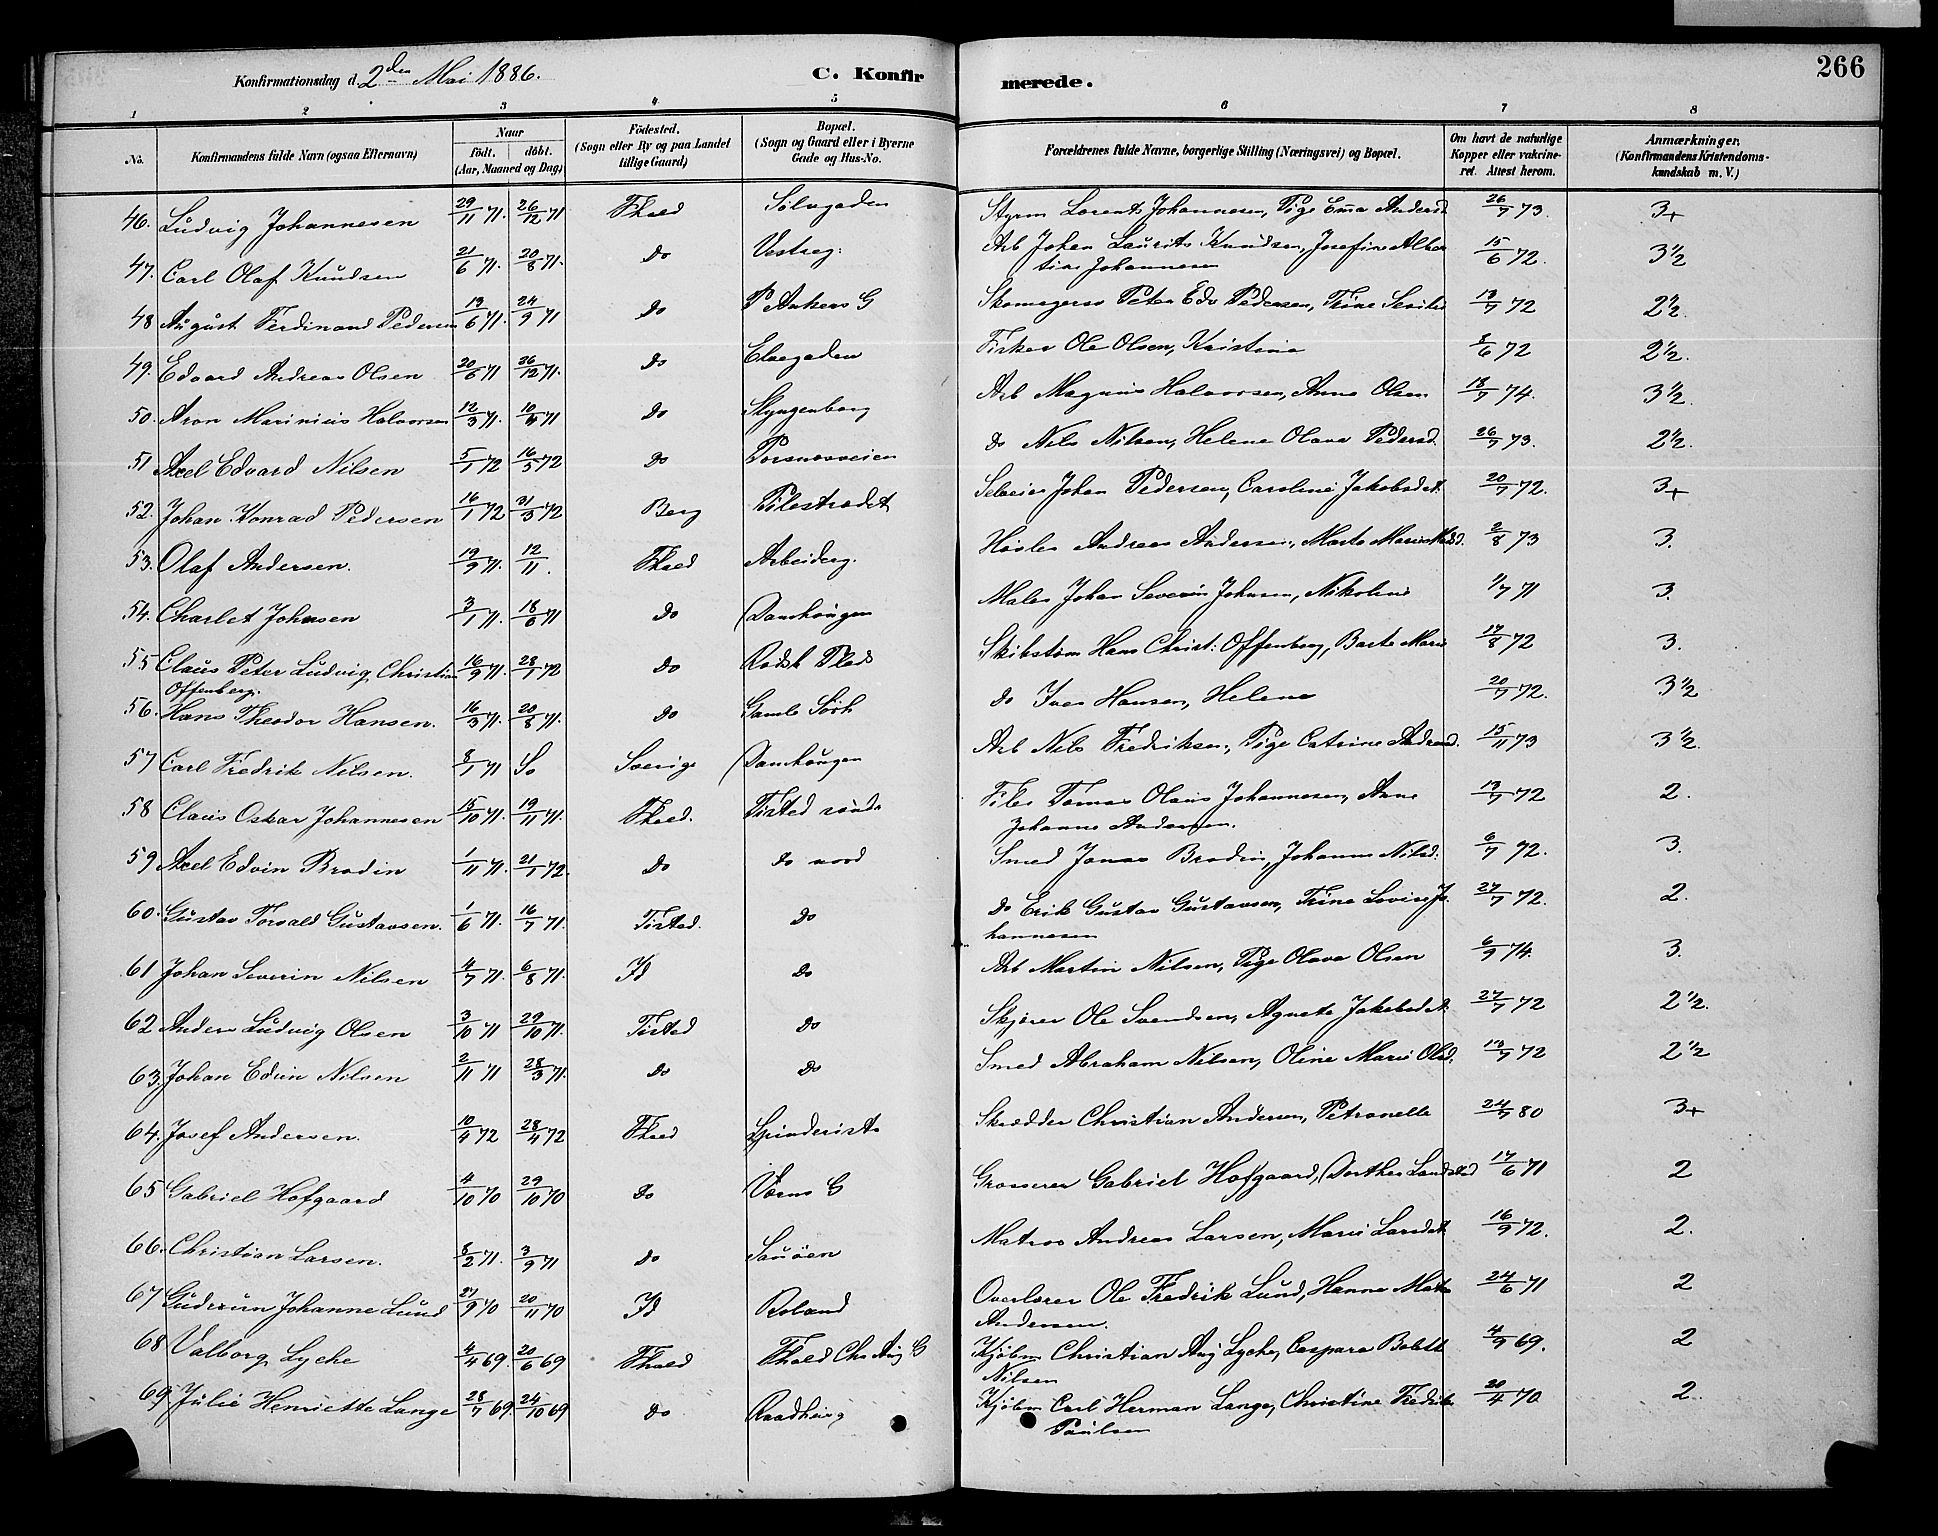 266
Konfirmationsdag d. 2den Mai 1886.
C. Konfirmerede.
1 2 3 4 5 6 7 8
No. Konfirmandens fulde Navn (ogsaa Efternavn) Naar født. døbt. (Aar, Maaned og Dag) Fødested. (Sogn eller By og paa Landet tillige Gaard) Bopæl. (Sogn og Gaard eller i Byerne Gade og Hus-No. Forældrenes fulde Navne, borgerlige Stilling (Næringsvei) og Bopæl. Om havt de naturlige Kopper eller vakcineret. Attest herom. Anmærkninger. (Konfirmandens Kristendomskundskab m. V.)
46. Ludvig Johannesen 29/11 71. 26/12 71 Fhald Sølvgaden Styrm Lorents Johannesen, Pige Emma Andersd 26/7 73. 3+
47. Carl Olaf Knudsen 21/6 71. 20/8 71. Do Vestreg: Arb Johan Laurits Knudsen, Josefine Albertine Johannesen 15/6 72. 3 1/2
48 August Ferdinand Pedersen 13/6 71. 24/9 71 Do P Ankers G Skomagersv Peter Edv Pedersen, Trine 13/7 72 2 1/2.
49. Edvard Andreas Olsen 20/6 71 26/12 71. Do Elvegaden Fisker Ole Olsen, Kristine 8/6 72 2 1/2.
50. Aron Marinius Halvorsen 12/3 71. 10/4 71 Do Slyngenborg Arb Magnus Halvorsen, Anna Olsen 18/7 74. 3 1/2.
51 Axel Edvard Nilsen 5/1 72 16/5 72 Do Porsnæsveien Do Nils Nilsen, Helene Olava Pedersd. 26/7 73. 2 1/2.
52. Johan Konrad Pedersen 16/1 72 31/3 72 Berg Pilestrædet Selveier Johan Pedersen, Caroline Jakobsdt. 20/7 72. 3+
53. Olaf Andersen. 19/9 71. 12/11. Fhald Arbeiderg. Høvler Andreas Andersen, Marte Marie 2/8 73 3.
54. Charlet Johnsen 3/1 71. 18/6 71 Do Damhaugen Maler Johan Severin Johnsen, Nikoline 1/7 71 3.
55 Claus Peter Ludvig Christian Offenberg. 16/9 71. 28/1 72 Do Rødsb Plads Skibstøm Hans Christ: Offenberg, Barte Marie 17/8 72 3.
56. Hans Theodor Hansen. 16/3 71. 20/8 71. Do Gamle Sørh Do Iver Hansen, Helene 20/7 72. 3 1/2
57 Carl Fredrik Nilsen. 8/1 71 S Sverige Damhaugen Arb Nils Fredriksen, Pige Catrine Andersd. 15/11 73 3 1/2.
58 Claus Oskar Johannesen 15/10 71. 19/11 71. Fhald. Tisted sønd Filer Tomas Olaus Johannesen, Anne Johanne Andersen. 13/7 72 2.
59 Axel Edvin Brodin 1/11 71. 21/1 72. Do Do nord Smed Jonas Brodin, Johanne Nilsd: 6/7 72. 3.
60. Gustav Torvald Gustavsen. 1/6 71. 16/7 71. Tisted. Do Do Erik Gustav Gustavsen, Trine Lovise Johannesen 27/7 72. 2.
61 Johan Severin Nilsen 4/7 71. 6/8 71. Id Do Arb Martin Nilsen, Pige Olava Olsen 6/9 74. 3.
62 Anders Ludvig Olsen 3/10 71 29/10 71. Tisted Do Skjærer Ole Svendsen, Agnete Jakobsdt 27/7 72 2 1/2.
63. Johan Edvin Nilsen 2/11 71 28/3 71. Do Do Smed Abraham Nilsen, Oline Marie Olsd. 13/7 72 2 1/2
64. Josef Andersen. 10/4 72 28/4 72 Fhald Grinderist. Skrædder Christian Andersen, Petronelle 24/7 80 3+
65 Gabriel Hofgaard 4/10 70 29/10 70 Do Værns G Grosserer Gabriel Hofgaard, Dorthea Landstad 17/6 71 2
66. Christian Larsen. 8/2 71. 3/9 71 Do Sauøen Matros Andreas Larsen, Marie Larsdt. 16/9 72. 2.
67 Gudrun Johanne Lund 21/9 70 20/11 70 Id Roland Overlærer Ole Fredrik Lund, Hanne Andersen. 24/6 71 2
68 Valborg Lyche 4/4 69. 20/6 69 Fhald Fhald Chr Aug G Kjøbm Christian Aug Lyche, Caspara Nilsen 4/9 69. 2
69. Julie Henriette Lange 28/7 69. 24/10 69 Do Raadhusg Kjøbm Carl Herman Lange, Christine Fredrikke Paulsen 20/4 70 2.